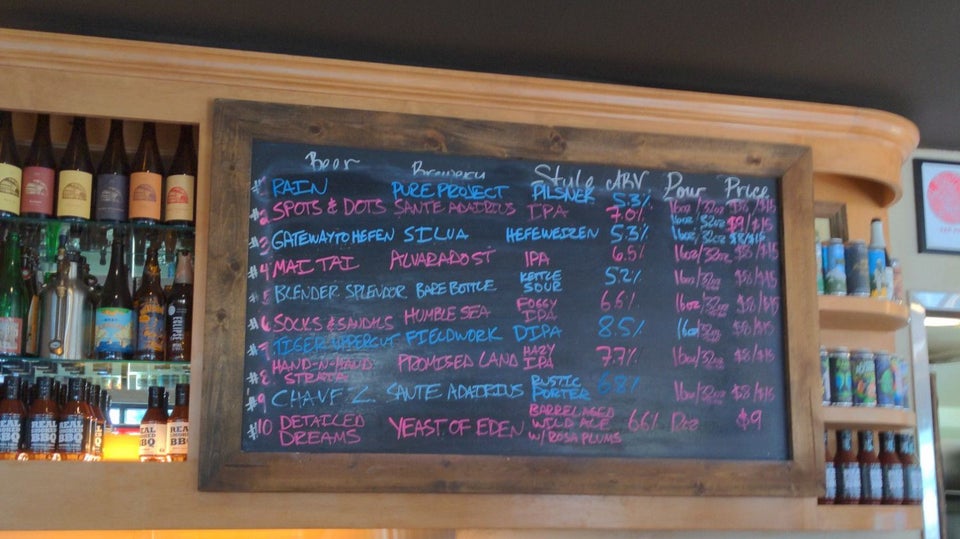 Beer Brewery Style ABV Pour Price
RAIN PURE PROJECT PILSNER 5.3% 16oz/32oz $8/$15
#2 SPOTS & DOTS SANTE ADAIRIUS IPA 7.0% 16oz/32oz $9/$15
#3 GATEWAY TO HEFEN SILVA HEFEWEIZEN 5.3% 16oz/32oz $8/$15
#4 MAI TAI ALVARADO ST IPA 6.5% 16oz/32oz $8/$15
#5 BLENDER SPLENDOR BARE BOTTLE KETTLE SOUR 5.2% 16oz/32oz $8/$15
#6 SOCKS & SANDALS HUMBLE SEA FOGGY IPA 6.6% 16oz/32oz $8/$15
TIGER UPPERCUT FIELDWORK DIPA 8.5% 16oz/32oz $8/$15
#8 HAND-N-HAND STRATA PROMISED LAND HAZY IPA 7.7% 16oz/32oz $8/$15
#9 SANTE ADAIRIUS RUSTIC PORTER 6.8% 16oz/32oz $8/$15
#10 DETAILED DREAMS YEAST OF EDEN BARREL AGED WILD ALE W/ ROSA PLUMS 6.6% $9
REAL
BBQ
REAL
BBQ
REAL
SMOKED
BBQ
REAL
BBQ
ECLIPSE